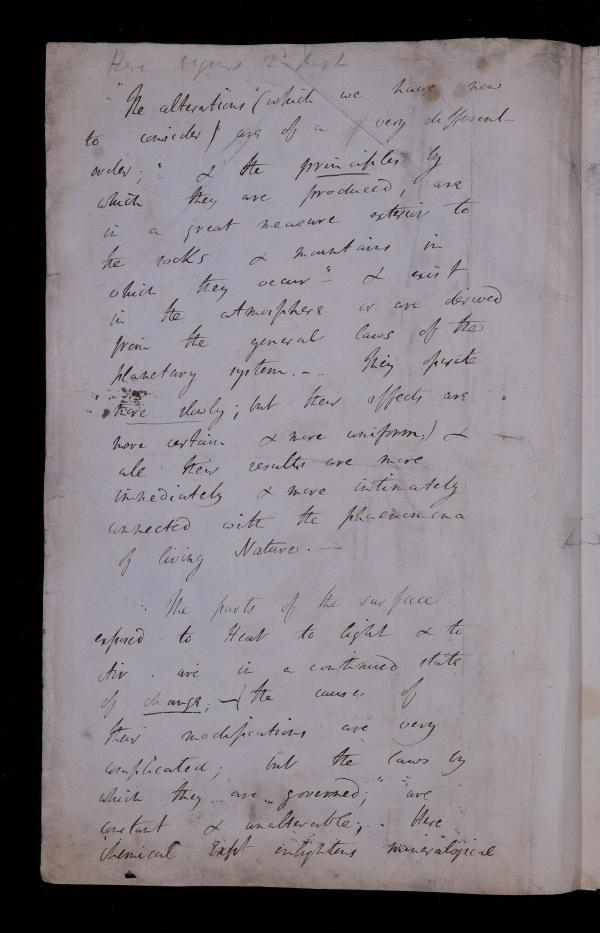 Here begins 2nd part
"The alterations" (which we have now
to consider) are of a very different
order; " & the principles by
which they are produced, are
in a great measure exterior to
the rocks & mountains in
which they occur" - & exist
in the atmosphere or are derived
from the general laws of the
planetary system. - . They operate
more slowly; but their effects are
more certain & more uniform,) &
all their results are more
immediately & more intimately
connected with the phaenomena
of living Nature. —
The parts of the surface
exposed to Heat to light & to
Air . are in a continued state
of change; — (the causes of
their modifications are very
complicated; but the laws by
which they are governed;" "are
constant & unalterable; . Here
chemical Expt enlightens mineralogical